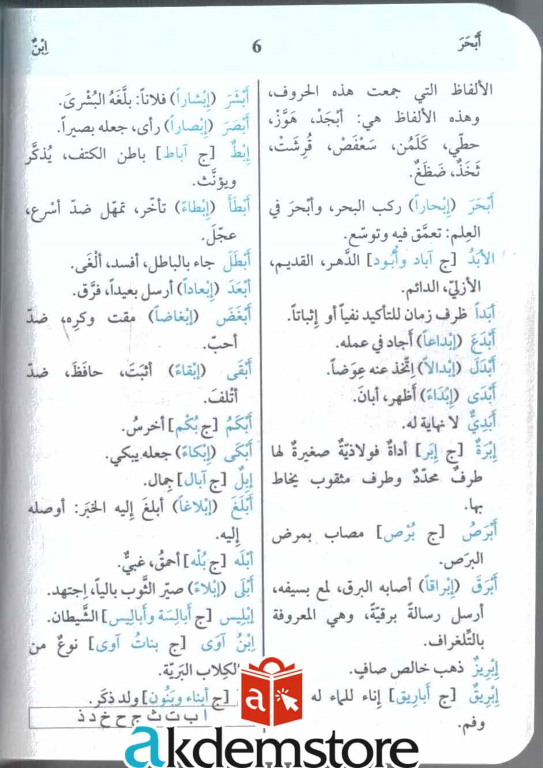 أَبْحَرَ
6
اِبْنٌ
الألفاظ التي جمعت هذه الحروف،
وهذه الألفاظ هي: أَبْجَدْ، هَوَّزْ،
حطّي، كَلَمُن، سَعْفَصْ، قُرِشَتْ،
ثَخَذْ، ضَظَغْ.
أَبْحَرَ (إِبْحاراً) ركب البحر، وأبْحرَ في
العِلم: تعمَّق فيه وتوسّع.
الأبَدُ [ج آباد وأُبُود] الدَّهر، القديم،
الأزليّ، الدائم.
أَبَداً ظرف زمان للتأكيد نفياً أو إثباتاً.
أَبْدَعَ (إِبْداعاً) أجاد في عمله.
أَبْدَلَ (إِبْدالاً) اِتَّخذ عنه عِوَضاً.
أَبْدَى (إِبْدَاءً) أظهر، أبانَ.
أَبَدِيٌّ لا نهاية له.
إِبْرَةٌ [ج إبَر] أداةٌ فولاذيّةٌ صغيرةٌ لها
طرفٌ محدّدٌ وطرف مثقوب يخاط
بها.
أَبْرَصُ [ج بُرْص] مصاب بمرض
البرَص.
أَبْرَقَ (إِبْراقاً) أصابه البرق، لمع بسيفه،
أرسل رسالةً برقيّةً، وهي المعروفة
بالتِّلغراف.
إِبْرِيزٌ ذهب خالص صافٍ.
إِبْرِيقٌ [ج أَبارِيق] إناء للماء له
وفم.
أَبْشَرَ (إِبْشاراً) فلاناً: بلَّغَهُ البُشْرىَ.
أَبْصَرَ (إِبْصاراً) رأى، جعله بصيراً.
إِبْطٌ [ج آباط] باطن الكتف، يُذكَّر
ويؤنَّث.
أَبْطَأَ (إِبْطاءً) تأخّر، تمهّل ضدّ أسْرع،
عجّلَ.
أَبْطَلَ جاء بالباطل، أفسد، ألْغَى.
أَبْعَدَ (إِبْعاداً) أرسل بعيداً، فرَّق.
أَبْغَضَ (إِبْغاضاً) مقت وكره، ضدّ
أحبّ.
أَبْقَى (إِبْقاءً) أثبَتَ، حافَظَ، ضدّ
أتْلفَ.
أَبْكَمُ [ج بُكْم] أخرسُ.
أَبْكَى (إِبْكاءً) جعله يبكي.
إِبِلٌ [ج آبال] جِمال.
أَبْلَغَ (إِبْلاغاً) أبلغَ إليه الخبَرَ: أوصله
إليه.
أَبْلَه [ج بُلْه] أحمقُ، غبيٌّ.
أَبْلَى (إِبْلاءً) صيّر الثَّوب بالياً، اِجتهد.
إِبْلِيس [ج أَبالِسَة وأَبالِيس] الشَّيطان.
اِبْنُ آوَى [ج بناتُ آوى] نوعٌ من
الكلاب البَرّية.
[ج أبناء وبَنُون] ولد ذكَر.
ا ب ت ث ج ح خ د ذ
a
akdemstore